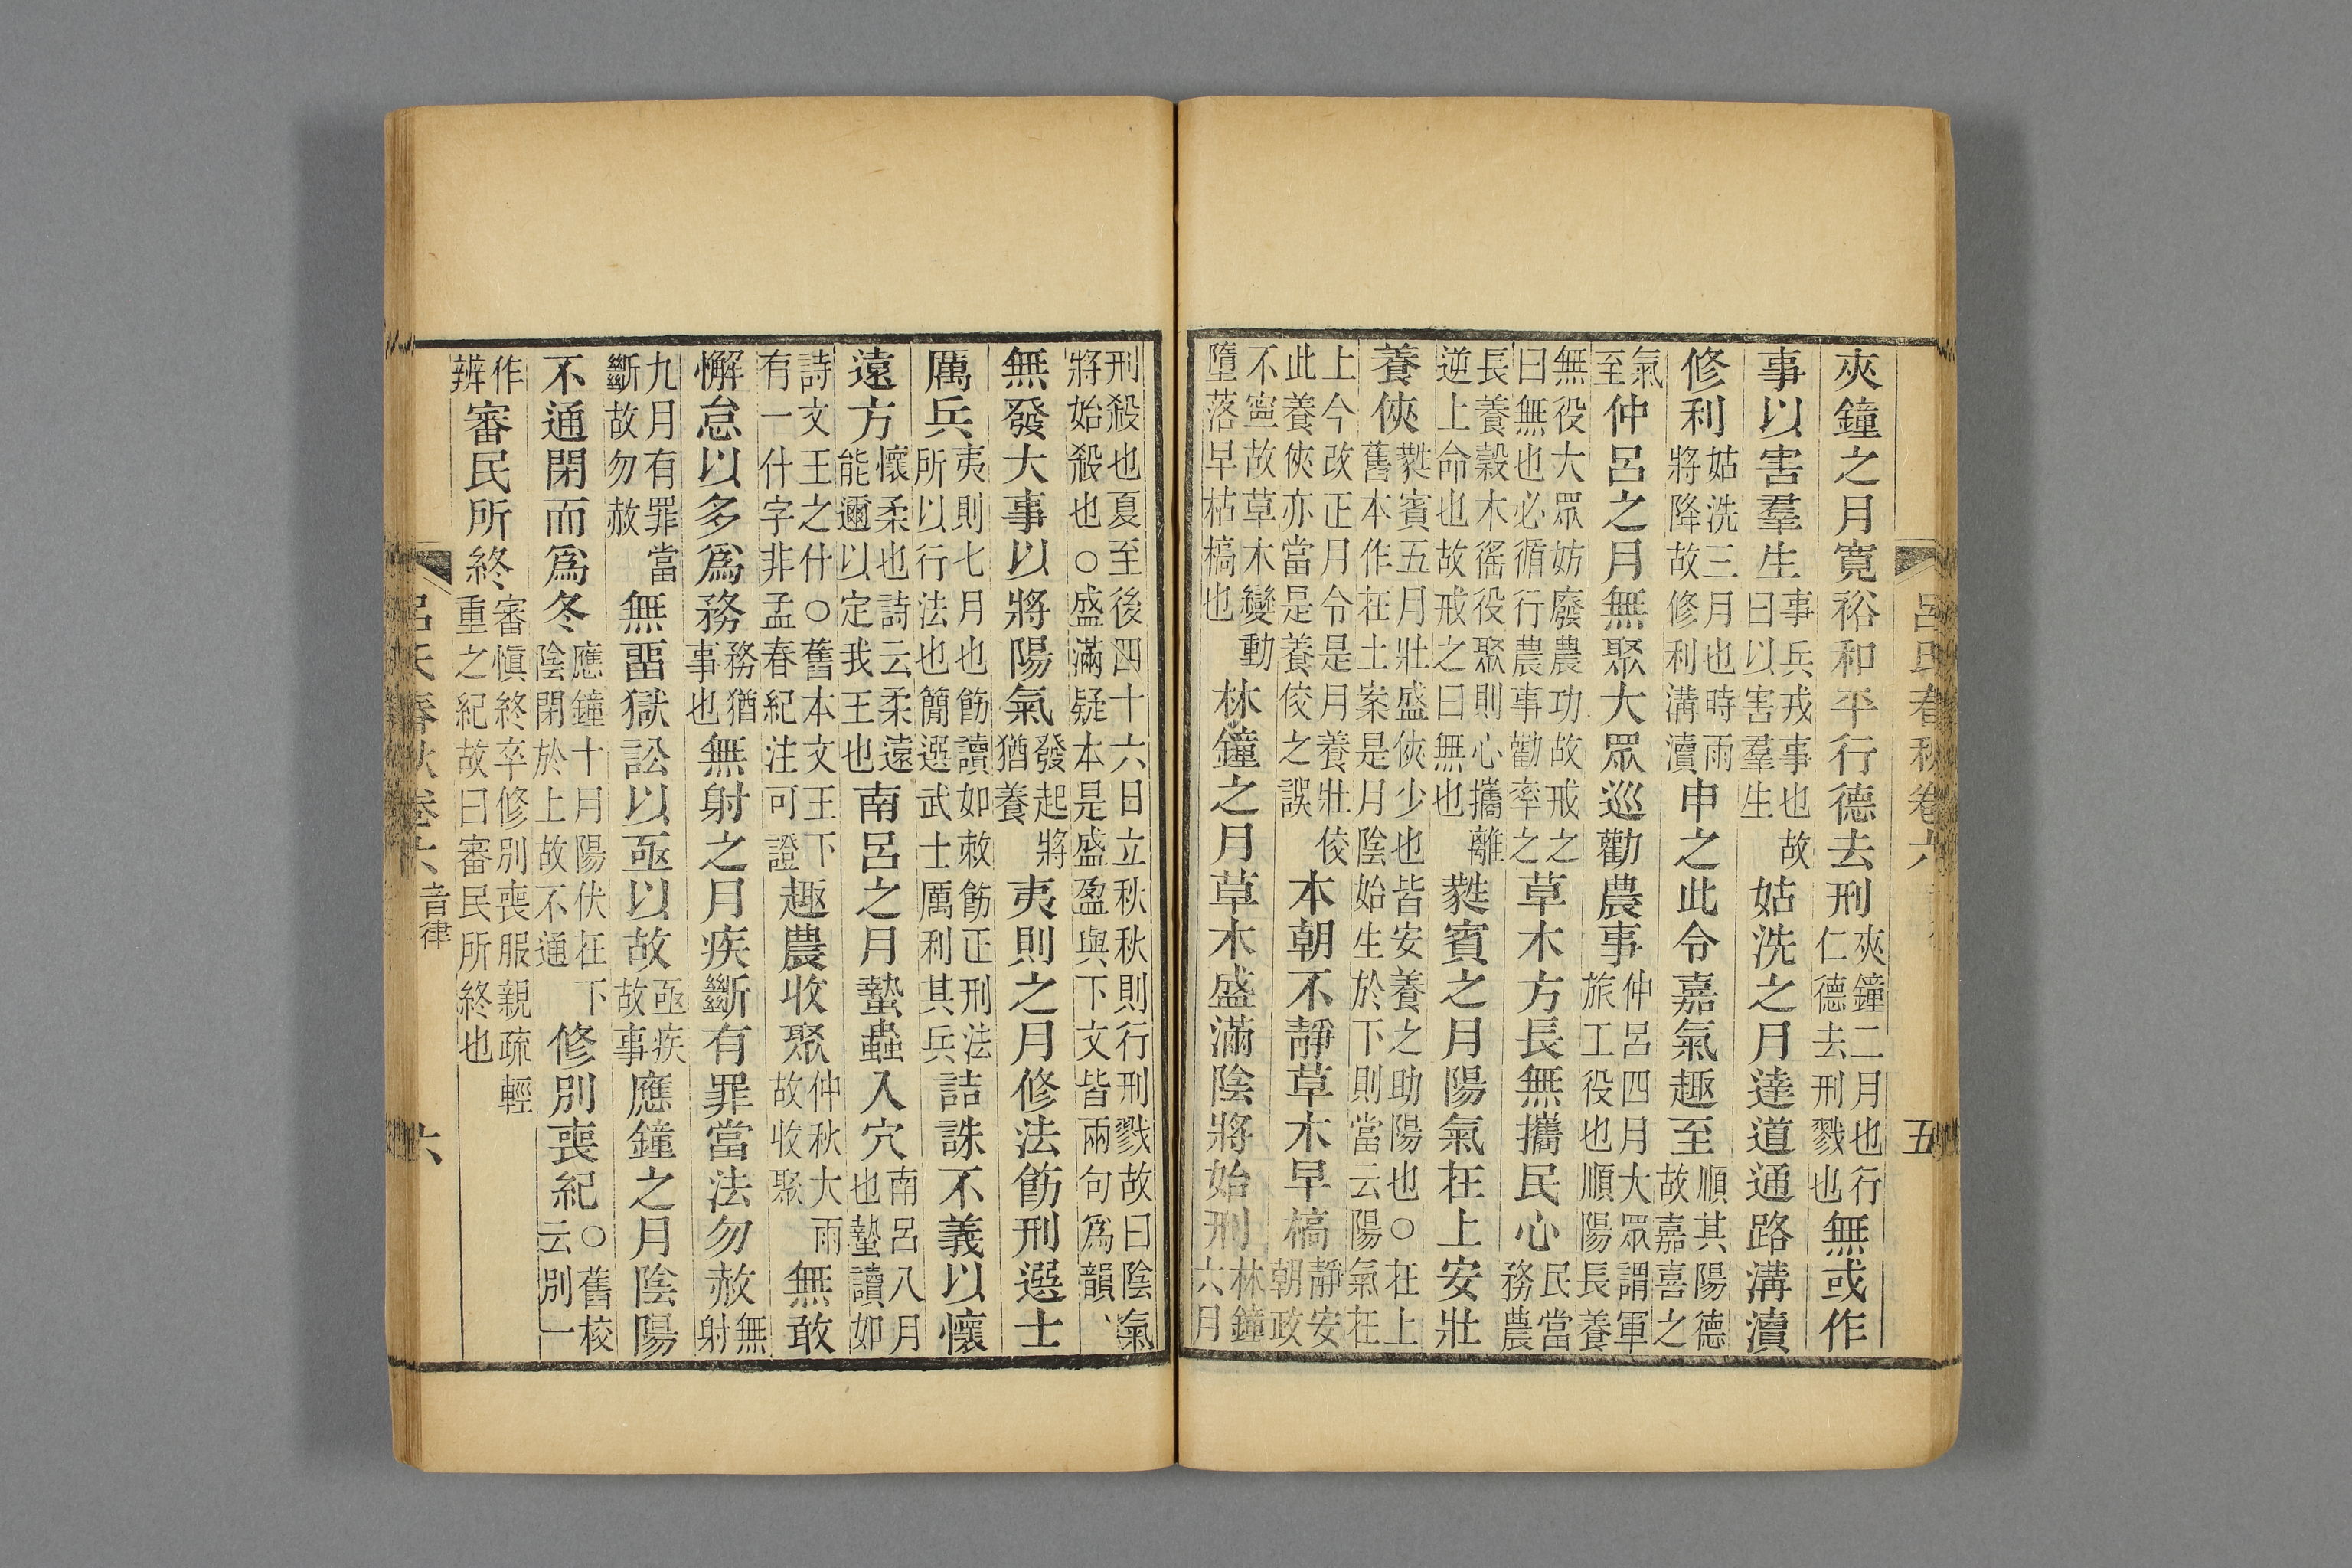 呂氏春秋卷六 五
夾鐘之月寬裕和平行德去刑夾鐘二月也行仁德去刑戮也無或作
事以害羣生事兵戎事也故曰以害羣生姑洗之月達道通路溝瀆
修利姑洗三月也時雨將降故修利溝瀆申之此令嘉氣趣至順其陽德故嘉喜之
氣至仲呂之月無聚大眾巡勸農事仲呂四月大眾謂軍旅工役也順陽長養
無役大眾妨廢農功故戒之曰無也必循行農事勸率之草木方長無攜民心民當務農
長養穀木徭役聚則心攜離逆上命也故戒之曰無也蕤賓之月陽氣在上安壯
養俠蕤賓五月壯盛俠少也皆安養之助陽也○在上舊本作在土案是月陰始生於下則當云陽氣在
上今改正月令是月養壯佼此養俠亦當是養佼之誤本朝不靜草木早槁靜安朝政
不寧故草木變動墮落早枯槁也林鐘之月草木盛滿陰將始刑林鐘六月
刑殺也夏至後四十六日立秋秋則行刑戮故曰陰氣將始殺也○盛滿疑本是盛盈與下文皆兩句爲韻、
無發大事以將陽氣發起將猶養夷則之月修法飭刑選士
厲兵夷則七月也飭讀如敕飭正刑法所以行法也簡選武士厲利其兵詰誅不義以懷
遠方懷柔也詩云柔遠能邇以定我王也南呂之月蟄蟲入穴南呂八月也蟄讀如
詩文王之什○舊本文王下有一什字非孟春紀注可證趣農收聚仲秋大雨故收聚無敢
懈怠以多爲務務猶事也無射之月疾斷有罪當法勿赦無射
九月有罪當斷故勿赦無畱獄訟以亟以故亟疾故事應鐘之月陰陽
不通閉而爲冬應鐘十月陽伏在下陰閉於上故不通修別喪紀○舊校云別一
作辨審民所終審愼終卒修別喪服親疏輕重之紀故曰審民所終也
呂氏春秋卷六 音律 六